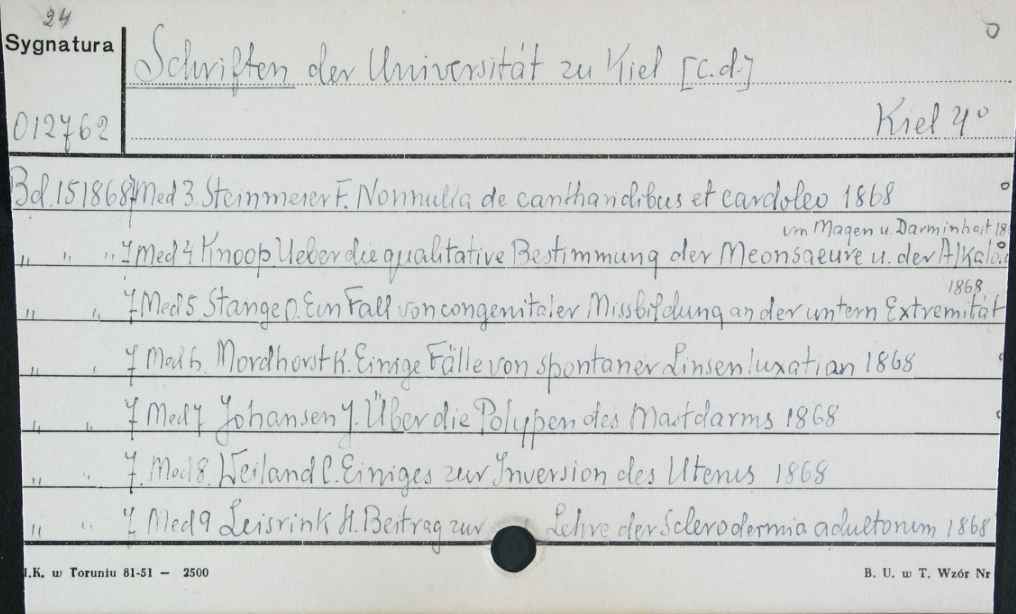 24
Sygnatura
Schriften der Universität zu Kiel [c.d.]
012762
Kiel 4°
Bd. 15 1868 7 Med 3. Steinmeier F. Nonnulla de cantharidibus et cardoleo 1868
im Magen u. Darminhalt 18
" " " 7 Med 4 Knoop. Ueber die qualitative Bestimmung der Meonsaeure u. der Alkaloi
1868
" " 7 Med 5 Stange O. Ein Fall von congenitaler Missbildung an der untern Extremität
" " 7 Med 6. Mordhorst K. Einige Fälle von spontaner Linsenluxation 1868
" " 7 Med 7 Johansen J. Über die Polypen des Mastdarms 1868
" " 7. Med 8. Weiland C. Einiges zur Inversion des Uterus 1868
" " 7 Med 9 Leisrink H. Beitrag zur Lehre der Sclerodermia adultorum 1868
I.K. w Toruniu 81-51 — 2500
B. U. w T. Wzór Nr